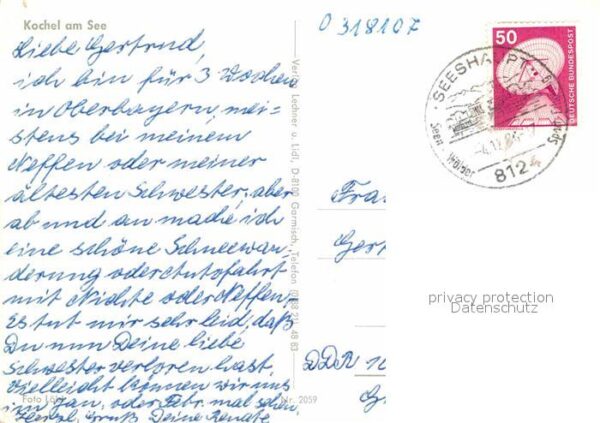 Kochel am See
0318107
Liebe Gertrud,
ich bin für 3 Wochen
in Oberbayern, mei-
stens bei meinem
Neffen oder meiner
ältesten Schwester, aber
ab und an mache ich
eine schöne Schneewan-
derung oder Autofahrt
mit Nichte oder Neffen.
Es tut mir sehr leid, daß
Du nun Deine liebe
Schwester verloren hast.
Vielleicht können wir uns
im Jan. oder Febr. mal sehen,
Herzl. Gruß Deine Renate
Foto Löbl
Nr. 2059
Verlag Lechner u. Lidl, D-8100 Garmisch, Telefon
50
DEUTSCHE BUNDESPOST
SEESHAUPT
Seen
8124
Frau
Ger
DDR 10
G
privacy protection
Datenschutz